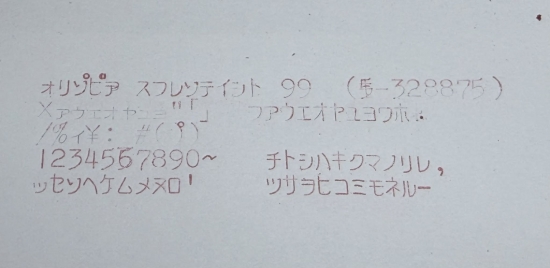 オリンピア スフレンテイント 99 (-328875)
Xァウエオヤユヨ"「」 フアウエオヤユヨワホ.
/%ィ¥: #(゜)
1234567890~ チトシハキクマノリレ,
ッセソヘケムメヌロ' ツサヲヒコミモネルー